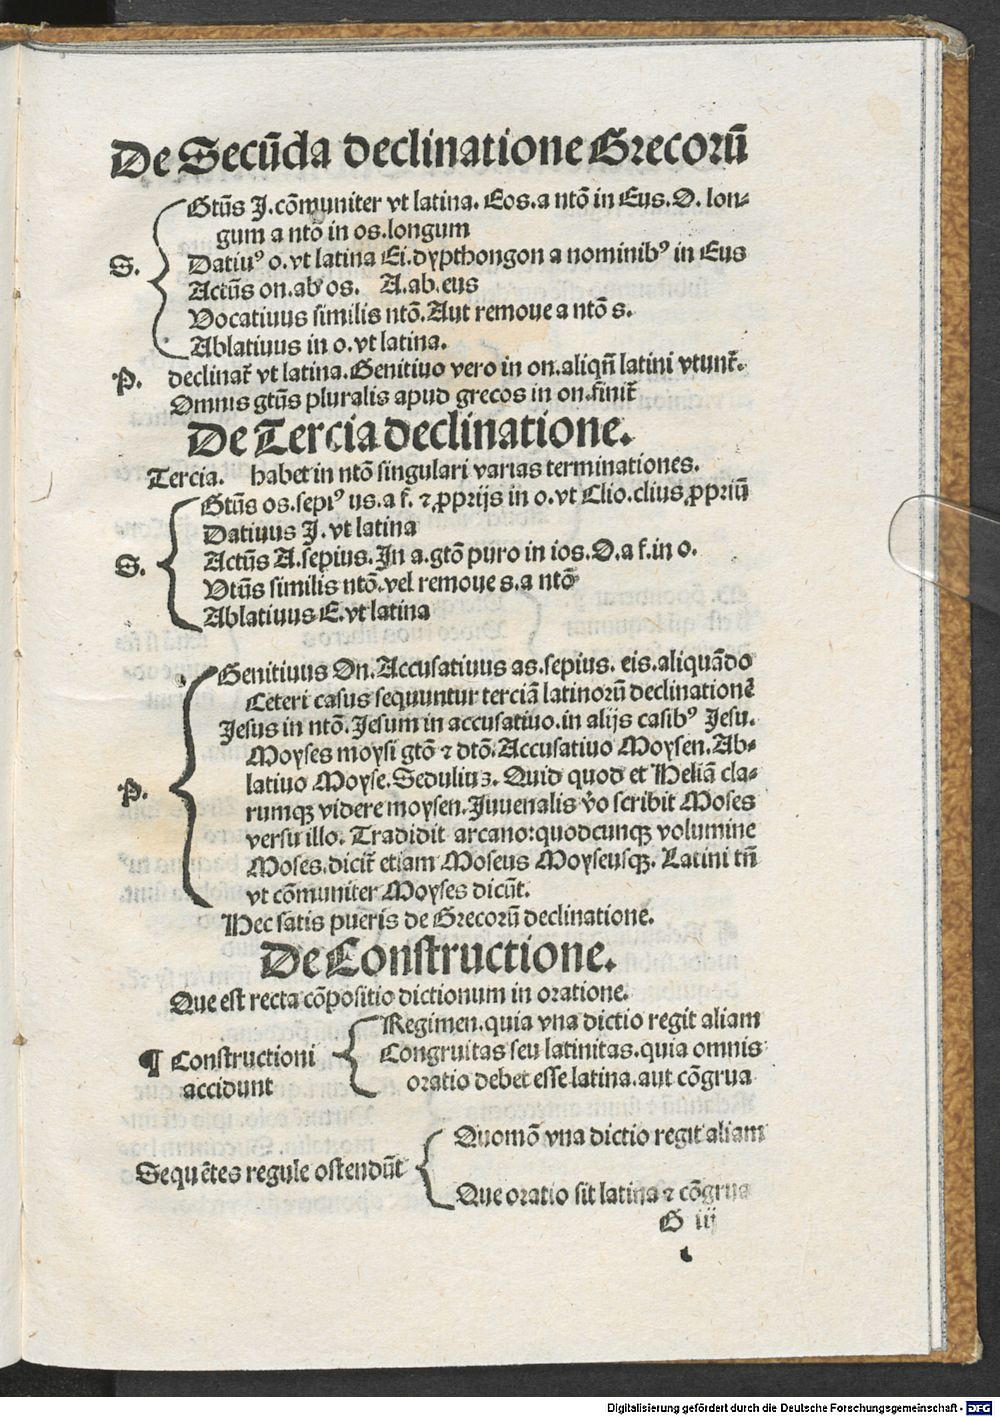 De Secūda declinatione Grecorū
Gtūs J. cōmuniter vt latina. Eos. a ntō in Eus. O. lon-
gum a ntō in os. longum
S. Datiuꝰ o. vt latina Ei. dypthongon a nominibꝰ in Eus
Actūs on. ab os. A. ab. eus
Vocatiuus similis ntō. Aut remoue a ntō s.
Ablatiuus in o. vt latina.
P. declinat̄ vt latina. Genitiuo vero in on. aliqn̄ latini vtunt̄.
Omnis gtūs pluralis apud grecos in on. finit̄
De Tercia declinatione.
Tercia. habet in ntō singulari varias terminationes.
Gtūs os. sepiꝰ us. a f. ⁊ ꝓprijs in o. vt Clio. clius ꝓpriū
Datiuus J. vt latina
S. Actūs A. sepius. In a. gtō puro in ios. O. a f. in o.
Vtūs similis ntō. vel remoue s. a ntō
Ablatiuus E. vt latina
Genitiuus On. Accusatiuus as. sepius. eis. aliquādo
Ceteri casus sequuntur terciā latinorū declinationē
Jesus in ntō. Jesum in accusatiuo. in alijs casibꝰ Jesu.
Moyses moysi gtō ⁊ dtō. Accusatiuo Moysen. Ab-
P. latiuo Moyse. Seduliuꝫ. Quid quod et Heliā cla-
rumqꝫ videre moysen. Juuenalis v̄o scribit Moses
versu illo. Tradidit arcano: quodcunqꝫ volumine
Moses. dicit̄ etiam Moseus Moyseusqꝫ. Latini tn̄
vt cōmuniter Moyses dicūt.
Hec satis pueris de Grecorū declinatione.
De Constructione.
Que est recta cōpositio dictionum in oratione.
Regimen. quia vna dictio regit aliam
¶ Constructioni Congruitas seu latinitas. quia omnis
accidunt oratio debet esse latina. aut cōgrua
Quomō vna dictio regit aliam
Sequētes regule ostendūt
Que oratio sit latina ⁊ cōgrua
G iij
Digitalisierung gefördert durch die Deutsche Forschungsgemeinschaft - DFG